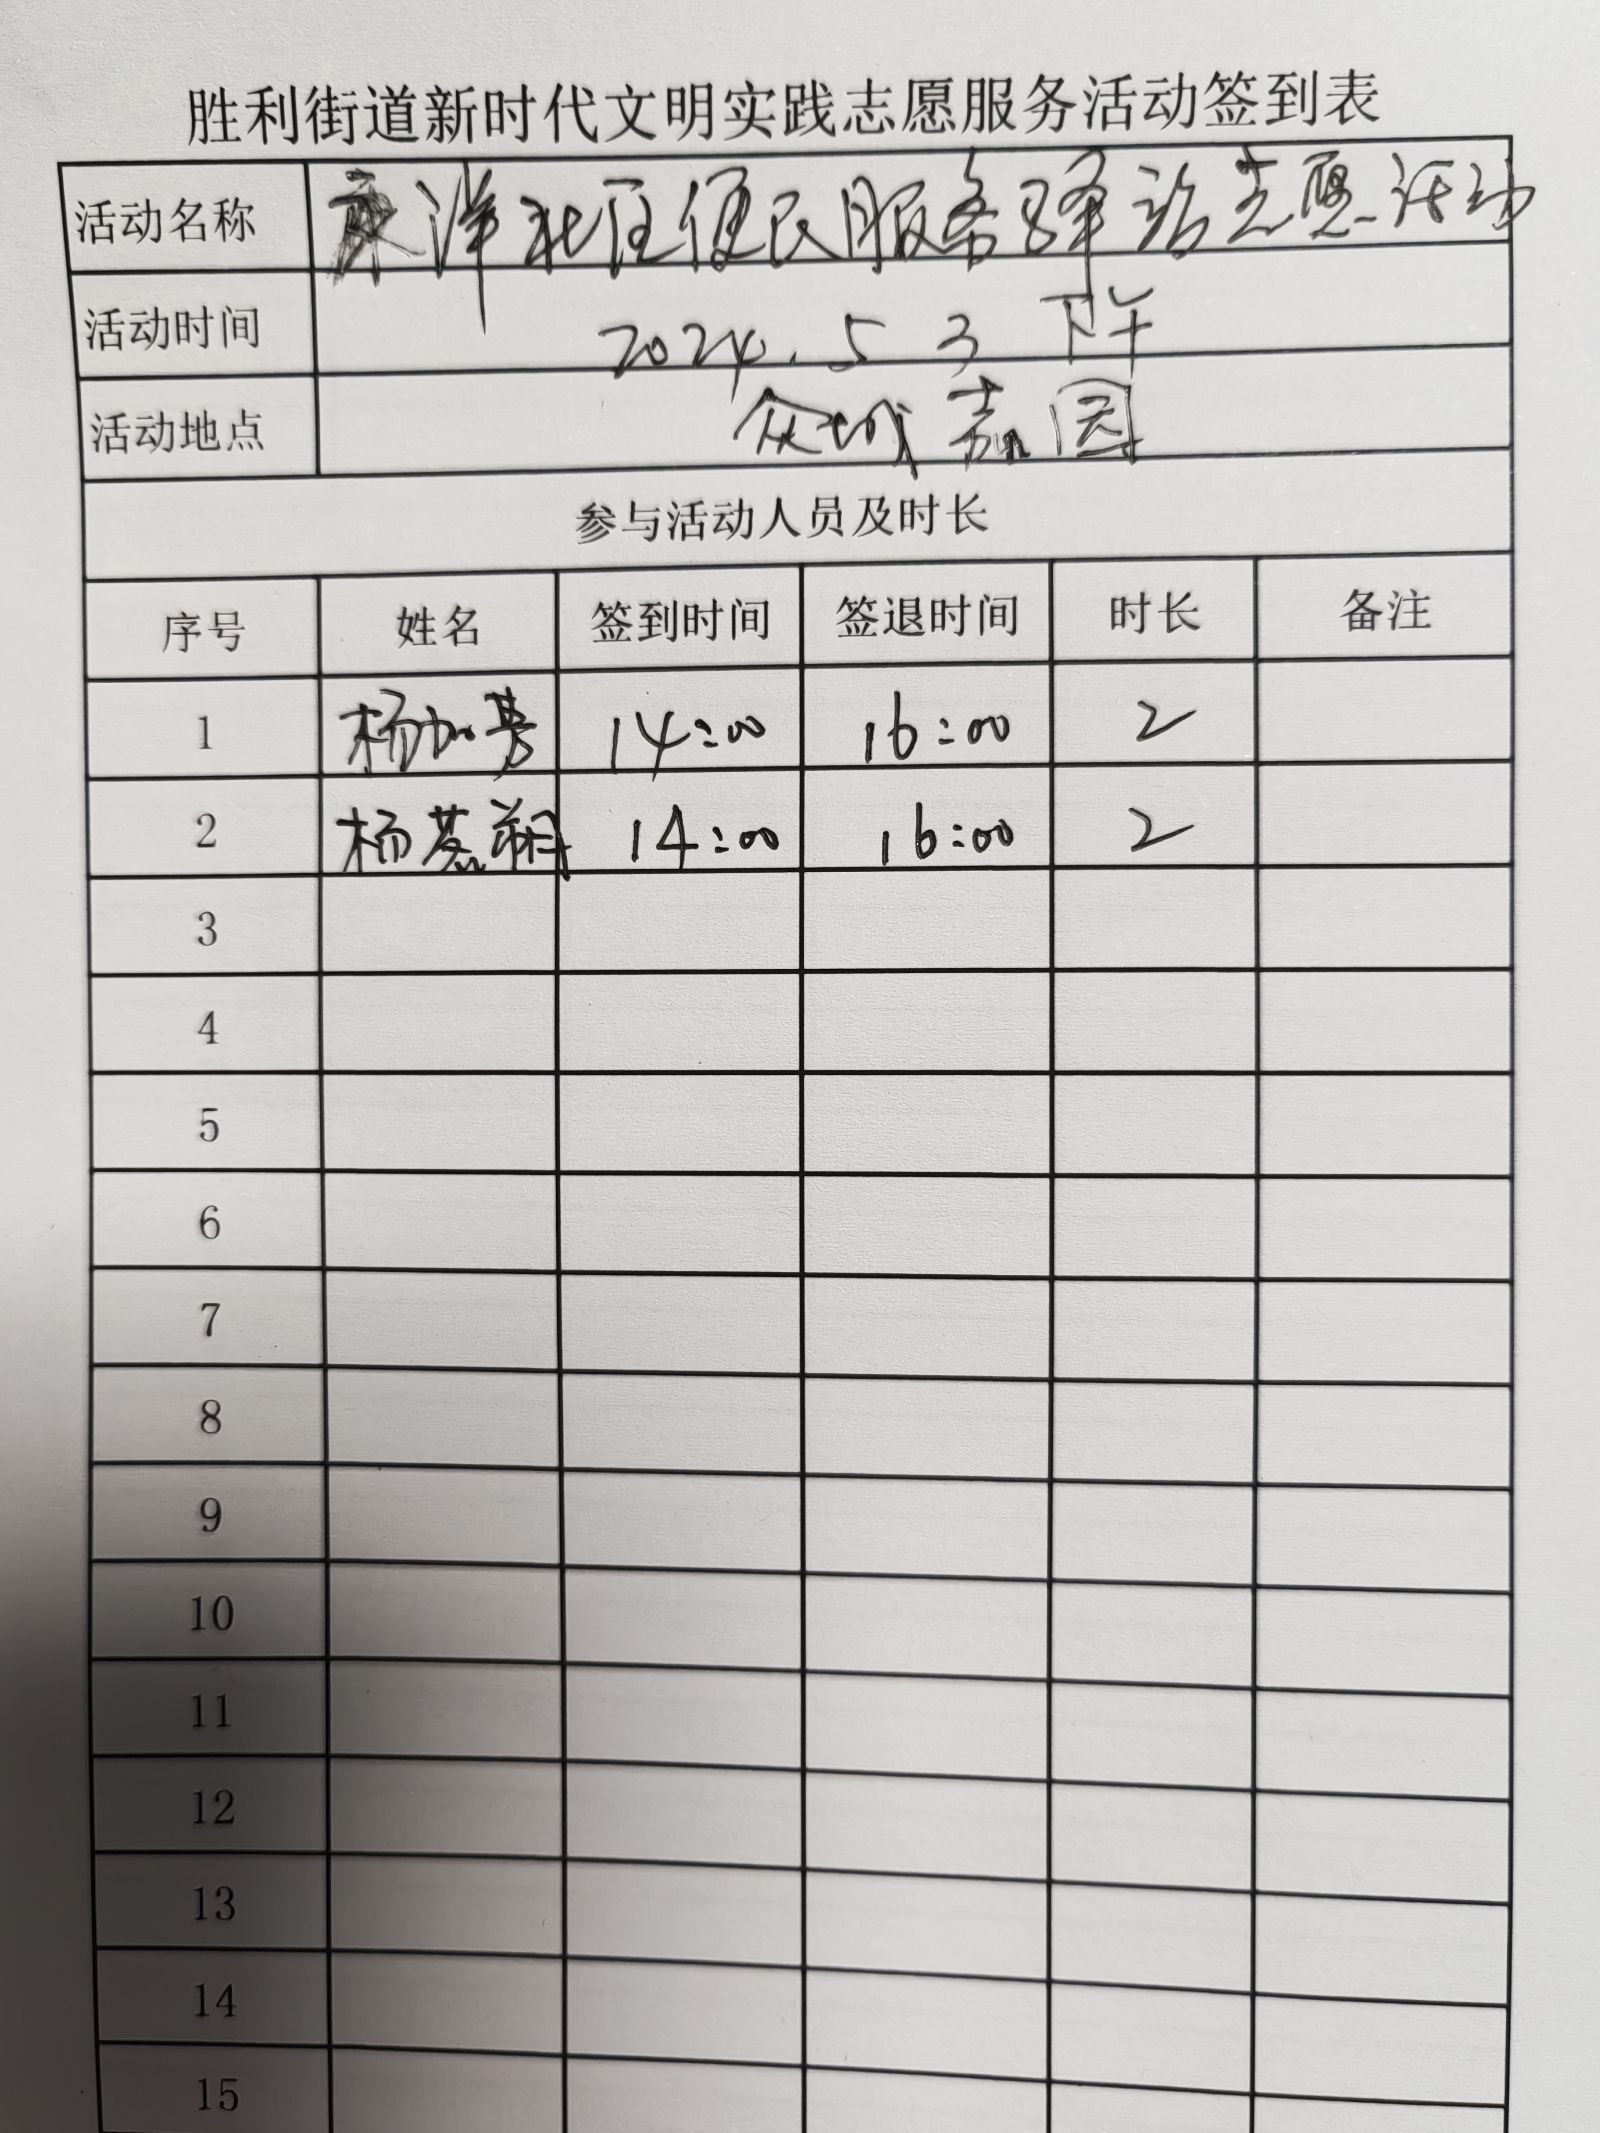 胜利街道新时代文明实践志愿服务活动签到表
活动名称 洋北区便民服务驿站志愿活动
活动时间 2024.5 3 下午
活动地点 众城嘉园
参与活动人员及时长
序号 姓名 签到时间 签退时间 时长 备注
1 杨加 14:00 16:00 2
2 杨 14:00 16:00 2
3
4
5
6
7
8
9
10
11
12
13
14
15